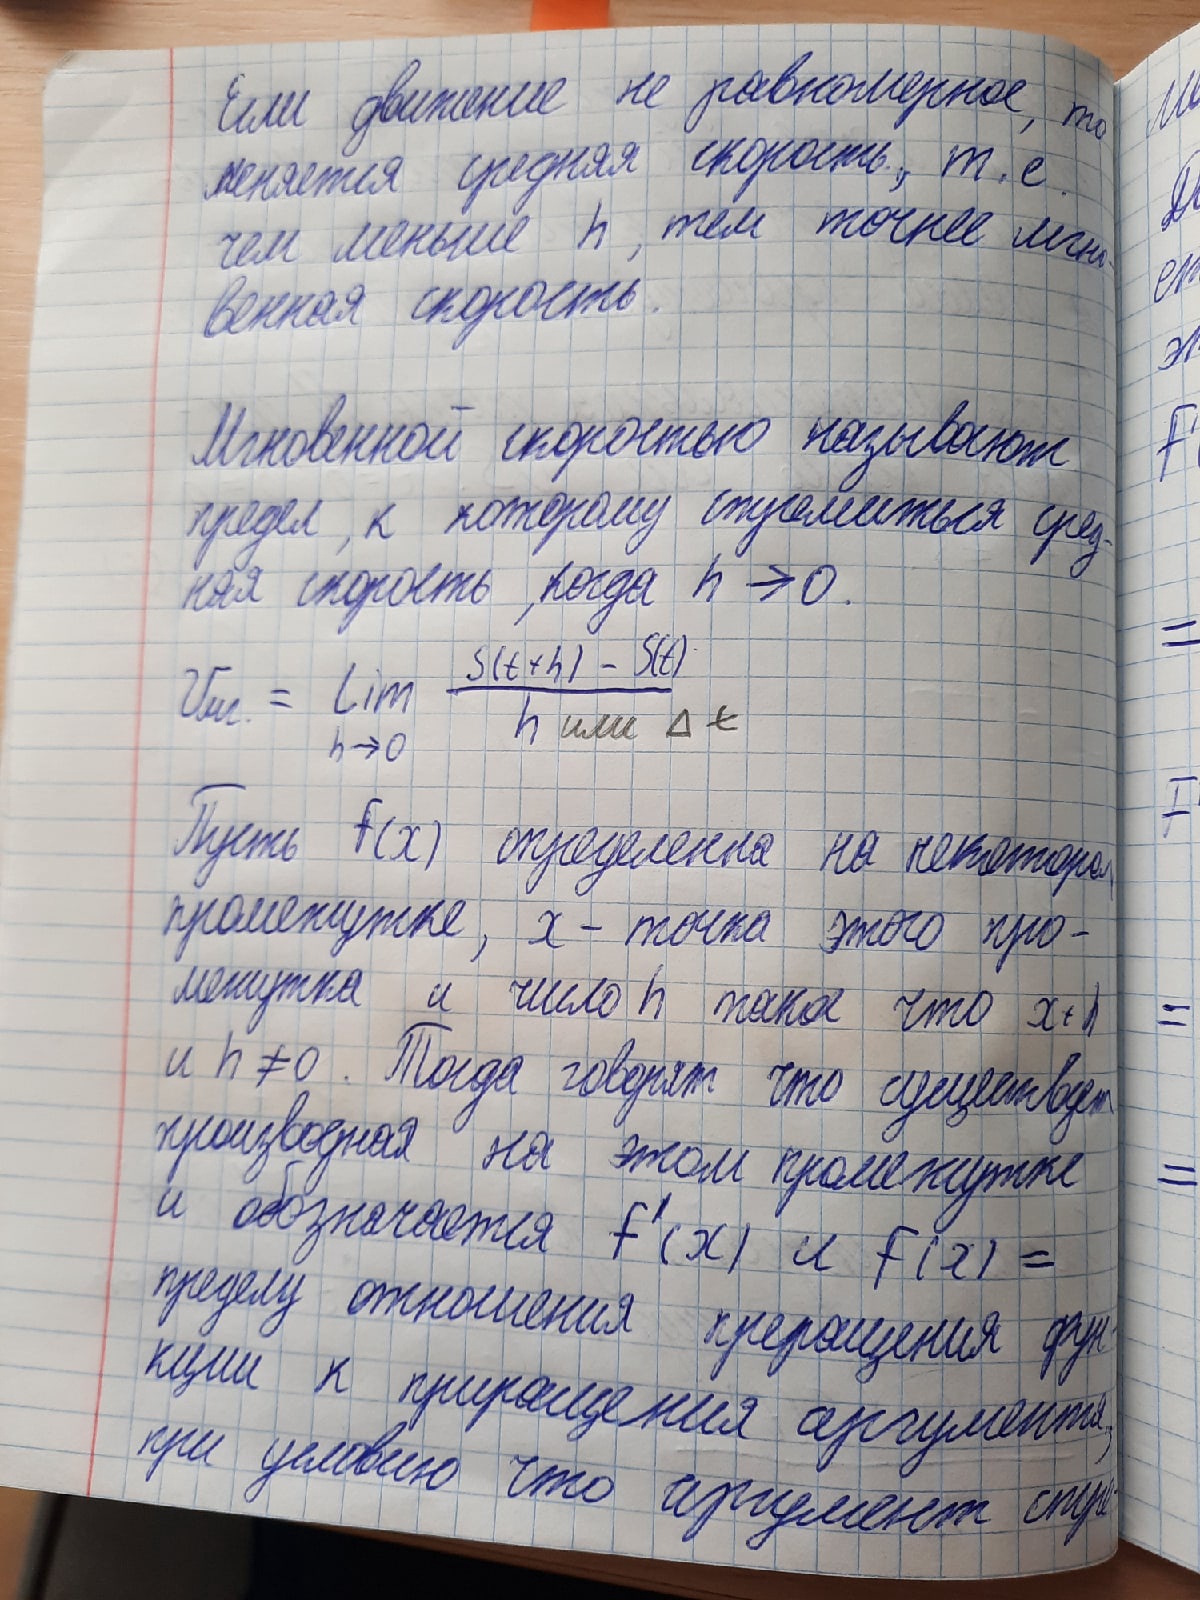 Если движение не равномерное, то
меняется средняя скорость, т.е.
чем меньше h, тем точнее мгно-
венная скорость.
Мгновенной скоростью называют
предел, к которому стремиться сред-
няя скорость, когда h → 0.
Vмг. = lim S(t+h) - S(t)
h→0 h или Δt
Пусть f(x) определенна на некотором
промежутке, x - точка этого про-
межутка и число h такое что x+h
и h ≠ 0. Тогда говорят что существует
производная на этом промежутке
и обозначается f'(x) и f(x) =
пределу отношения преращения фун-
кции к приращения аргумента,
при условию что аргумент стре-